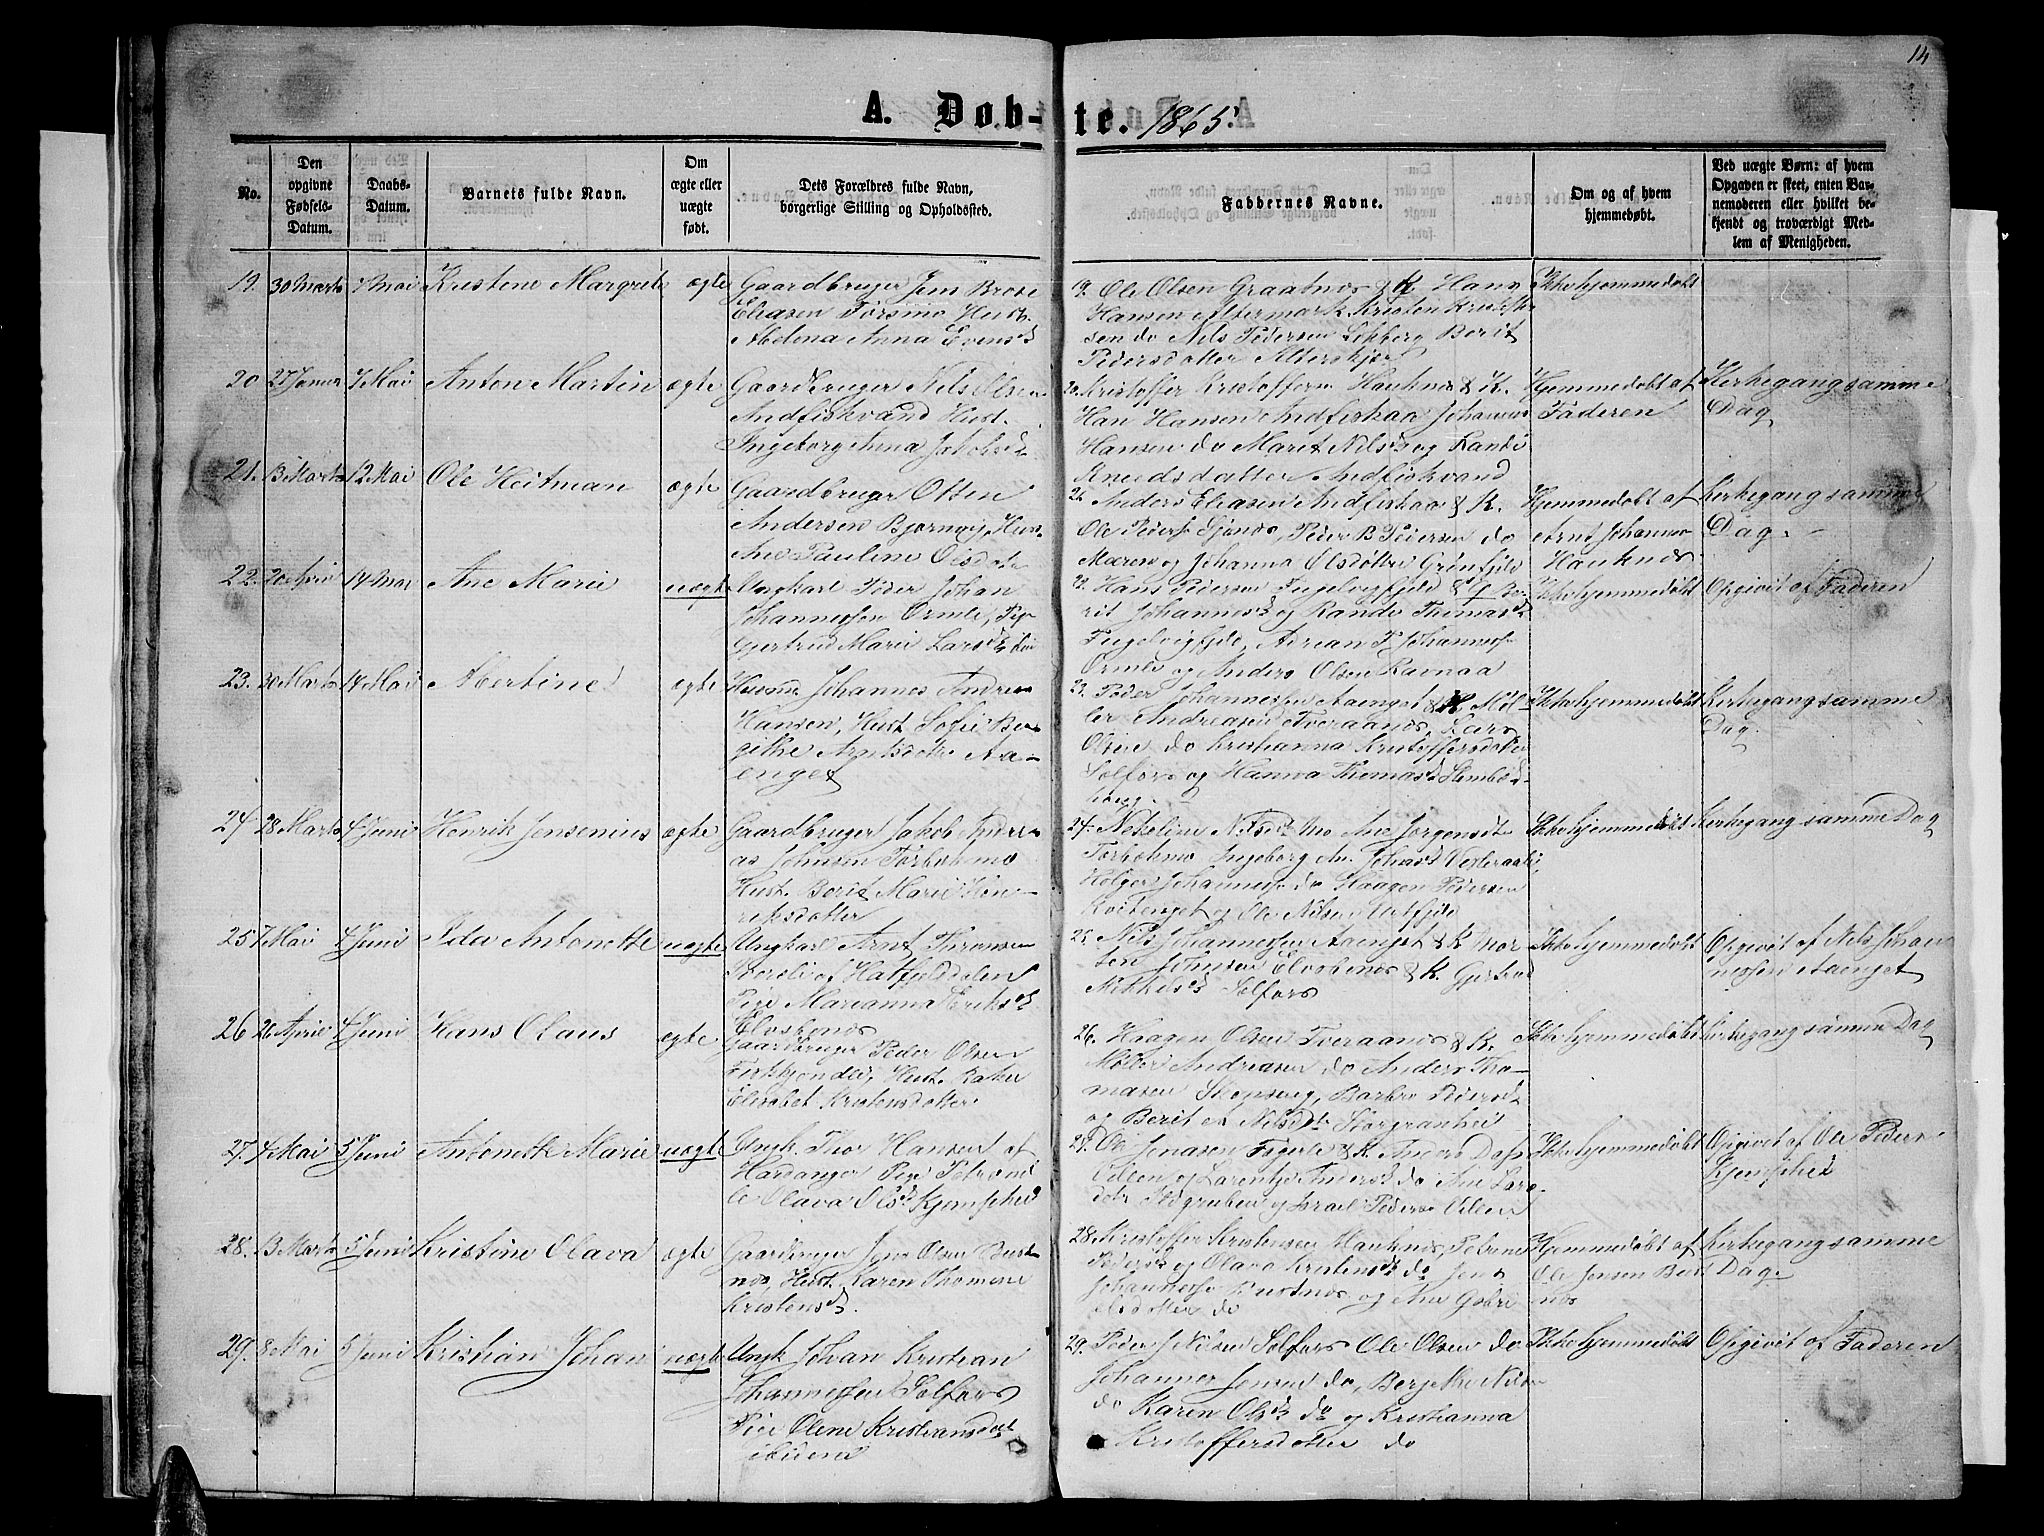 14
A. Døb-te. 1865.
No.
Den
opgivne
Fødsels-
Datum.
Daabs-
Datum.
Barnets fulde Navn.
Om
ægte eller
uægte
født.
Dets Forældres fulde Navn,
borgerlige Stilling og Opholdssted.
Faddernes Navne.
Om og af hvem
hjemmedøbt.
Ved uægte Børn: af hvem
Opgaven er skeet, enten Bar-
nemoderen eller hvilket be-
kjendt og troværdigt Med-
lem af Menigheden.
19. 30 Marts 7 Mai Kristene Margrete ægte
Gaardbruger Jens Brose
Eliasen Forsmo Hust.
Abelena Anna Evensd
19. Ole Olsen Graatnes & K. Hans
Hansen Altermark Kristen Kristoffer
sen do Nils Pedersen Berit
Pedersdatter
Ikke hjemmedøbt
20 27 Januar 7 Mai Anton Martin ægte
Gaardbruger Nils Olsen
Andfiskvand Hust.
Ingeborg Anna Jakobsd
20. Kristoffer Kristoffersen Hauknes & K.
Han Hansen Andfiskaa Johannes
Hansen do Maret Nilsd og Randi
datter Andfiskvand
Hjemmedøbt af
Faderen
Kirkegang samme
Dag
21. 13 Marts 12 Mai Ole Heitman ægte
Gaardbruger Otten
Andersen Bjørnvig, Hust.
Ane Pauline Olsdatr
21 Anders Eliasen Andfiskaa & K.
Ole Peders Peder B. Pedersen do
Maren og Johanna Olsdøttre Grønfjeld
Hjemmedøbt af
Arnt Johannes
Hauknes
Kirkegang samme
Dag.
22. 20 April 14 Mai Ane Marie uægte
Ungkarl Peder Johan
Johannessen Ormli, Pige
Gjertrud Marie Larsd
22. Hans Pedersen Fugelvigfjeld & G. Be-
rit Johannesd og Rande Thomasd
Fugelvigfjeld, Adrian F. Johannes
Ormli og Anders Olsen Ravnaa
Ikke hjemmedøbt
Opgivet af Faderen
23. 30 Marts 14 Mai Albertine ægte
Husmd Johannes Andreas
Hansen, Hust. Sofie Ber
gitthe Arntsdatter Aa-
enget
23. Peder Johannessen Aaenget & K. Møl-
ler Andreasen Tveraanes, Lars
Olsen do Kristianna Kristoffersdatter
Selfors og Hanna Thomasd
Ikke hjemmedøbt
Kirkegang samme
Dag.
24 28 Marts 4 Juni Henrik Jensenius ægte
Gaardbruger Jakob Andre-
as Johnsen Forbohmo
Hust. Berit Marie Hen-
riksdatter
24. Nekoline Nilsd Mo Ane Jørgensdr
Forbohmo Ingeborg An. Johnsd
Holger Johannessen do Haagen Pedersen
og Ole Nilsen Urtfjeld
Ikke hjemmedøbt
Kirkegang samme Dag
25 7 Mai 4 Juni Ida Antonette uægte
Ungkarl Arnt
af Hatfjelddalen
Pige Marianna Eriksd
25. Nils Johannessen Aaenget & K. Mor-
ten Johnsen & K. Gjertrud
Mikkelsd Selfors
Ikke hjemmedøbt
Opgivet af Nils Johan
nessen Aaenget
26 26 April 4 Juni Hans Olaus ægte
Gaardbruger Peder Olsen
Hust. Karen
Elisabet Kristensdatter
26. Haagen Olsen Tveraanes & K.
Møller Andreasen do Anders Tho-
masen Barbro Pedersd
og Berit A. Nilsdr Storgranheie
Ikke hjemmedøbt
Kirkegang samme Dag
27. 4 Mai 5 Juni Antonette Marie uægte
Ungk. Thor Hansen af
Hardanger Pige
Olava Olsd Kjempheid
27. Ole Jonasen & K. Anders Dass
og Larentse Andersd do Ane Lars-
datr og Israel Peders
Ikke hjemmedøbt
Opgivet af Ole Peders
Kjemphei
28. 13 Marts 5 Juni Kristine Olava ægte
Gaardbruger Jens Olsen Bust-
nes, Hust. Karen Thomine
Kristensd.
28. Kristoffer Kristensen Hauknes, Petrine
Pedersd og Olava Kristensd do Jens
Johannessen Bustnes og Ane Gabri
elsdatter do
Hjemmedøbt af
Ole Jensen Bust
nes
Kirkegang samme
Dag
29. 8 Mai 5 Juni Kristian Johan uægte
Ungk Johan Kristian
Johannessen Selfors
Pige Olene Kristiansdatr
ibidem
29. Peder J. Nilsen Selfors Ole Olsen do
Johannes Jensen do, Bergithe Nilsd
do Karen Olsd do og Kristianna
Kristoffersdatter do
Ikke hjemmedøbt
Opgivet af Faderen